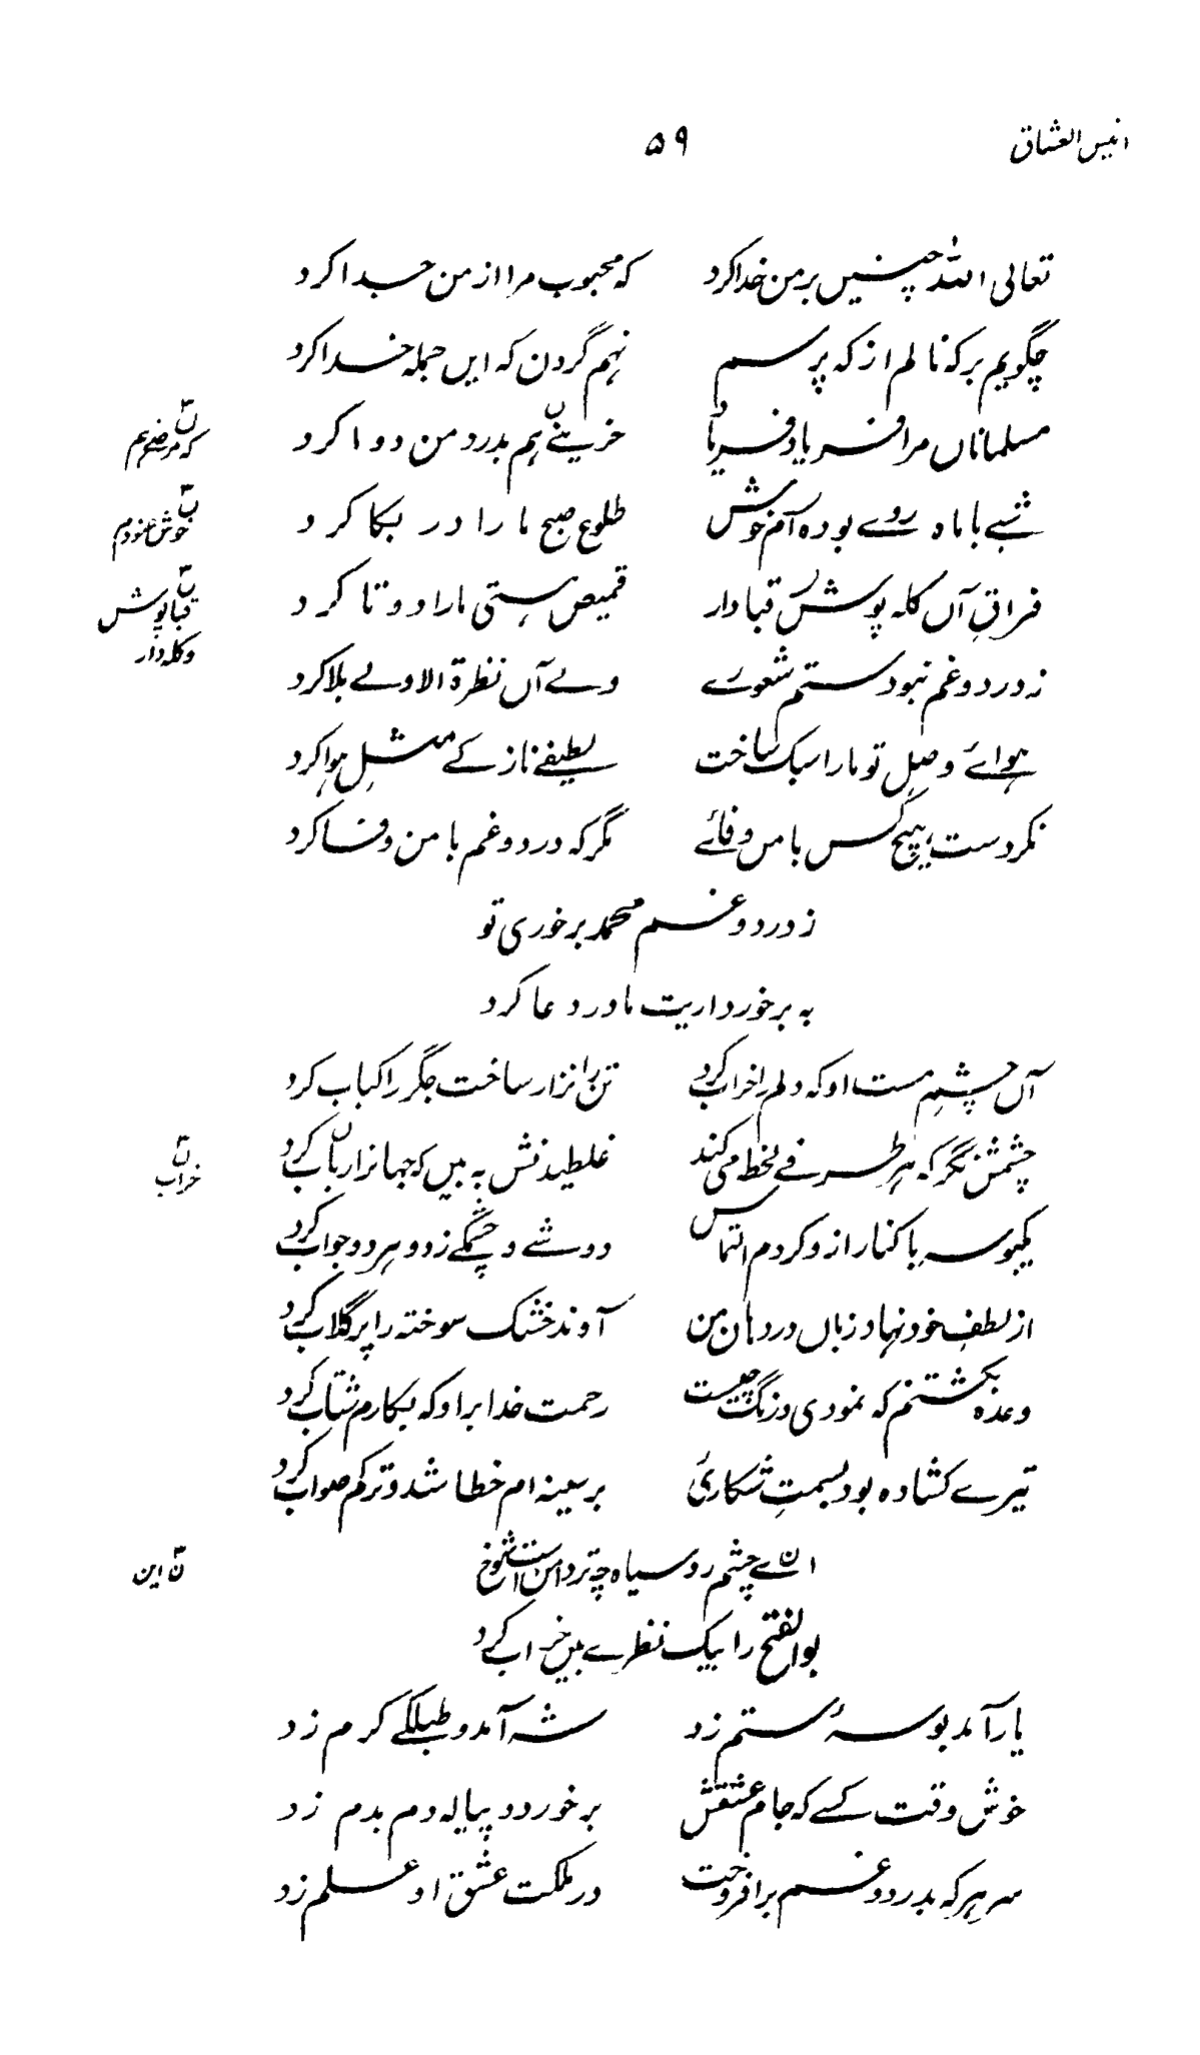 انیس العشاق ۵۹
تعالی اللہ چنیں بر من خدا کرد که محبوب مرا از من جدا کرد
چگویم بر که نالم از که پرسم نهم گردن که ایں جمله خدا کرد
مسلماناں مرا فریاد فریاد حزینےن هم بدرد من دوا کرد
ن که مرضیم
شبے با ماه روے بوده ام خوش طلوع صبح ما را در بکا کرد
ن خوش غنودم
فراقِ آں کله پوش قبا دار قمیص هستی ما را دوتا کرد
ن قبا پوش و کله دار
ز درد و غم نبودستم شعورے ولے آں نظرة الاولے بلا کرد
هوائے وصلِ تو ما را سبک ساخت لطیفے نازکے مثلِ هوا کرد
نکردست هیچ کس با من وفائے مگر که درد و غم با من وفا کرد
ز درد و غم محمد برخوری تو
به برخورداریت مادر دعا کرد
آں چشمِ مست او که دلم را خراب کرد تن را نزار ساخت جگر را کباب کرد
چشمش نگر که هر طرفے لحظ می کند غلطیدنش به بیں که جهانرا ربابن کرد
ن خراب
یکبوسه با کنار ازو کردم التماس دوشے و چشمگے زد و هر دو جواب کرد
از لطفِ خود نهاد زباں در دهان من آوند خشک سوخته را پر گلاب کرد
وعده بکشتنم که نمودی درنگ چیست رحمت خدا برا و که بکارم شتاب کرد
تیرے کشاده بود بسمتِ شکاریٔ بر سینه ام خطا شد و ترکم صواب کرد
اےن چشم رو سیاه چه تر دامن است شوخ
ن این
بوالفتح را بیک نظرے بیں خراب کرد
یار آمد بوسهٔ ستم زد شه آمد و طبلکے کرم زد
خوش وقت کسے که جام عشقش برخورد و پیاله دم بدم زد
سر هر که بدرد و غم برافروخت در مملکت عشق او علم زد